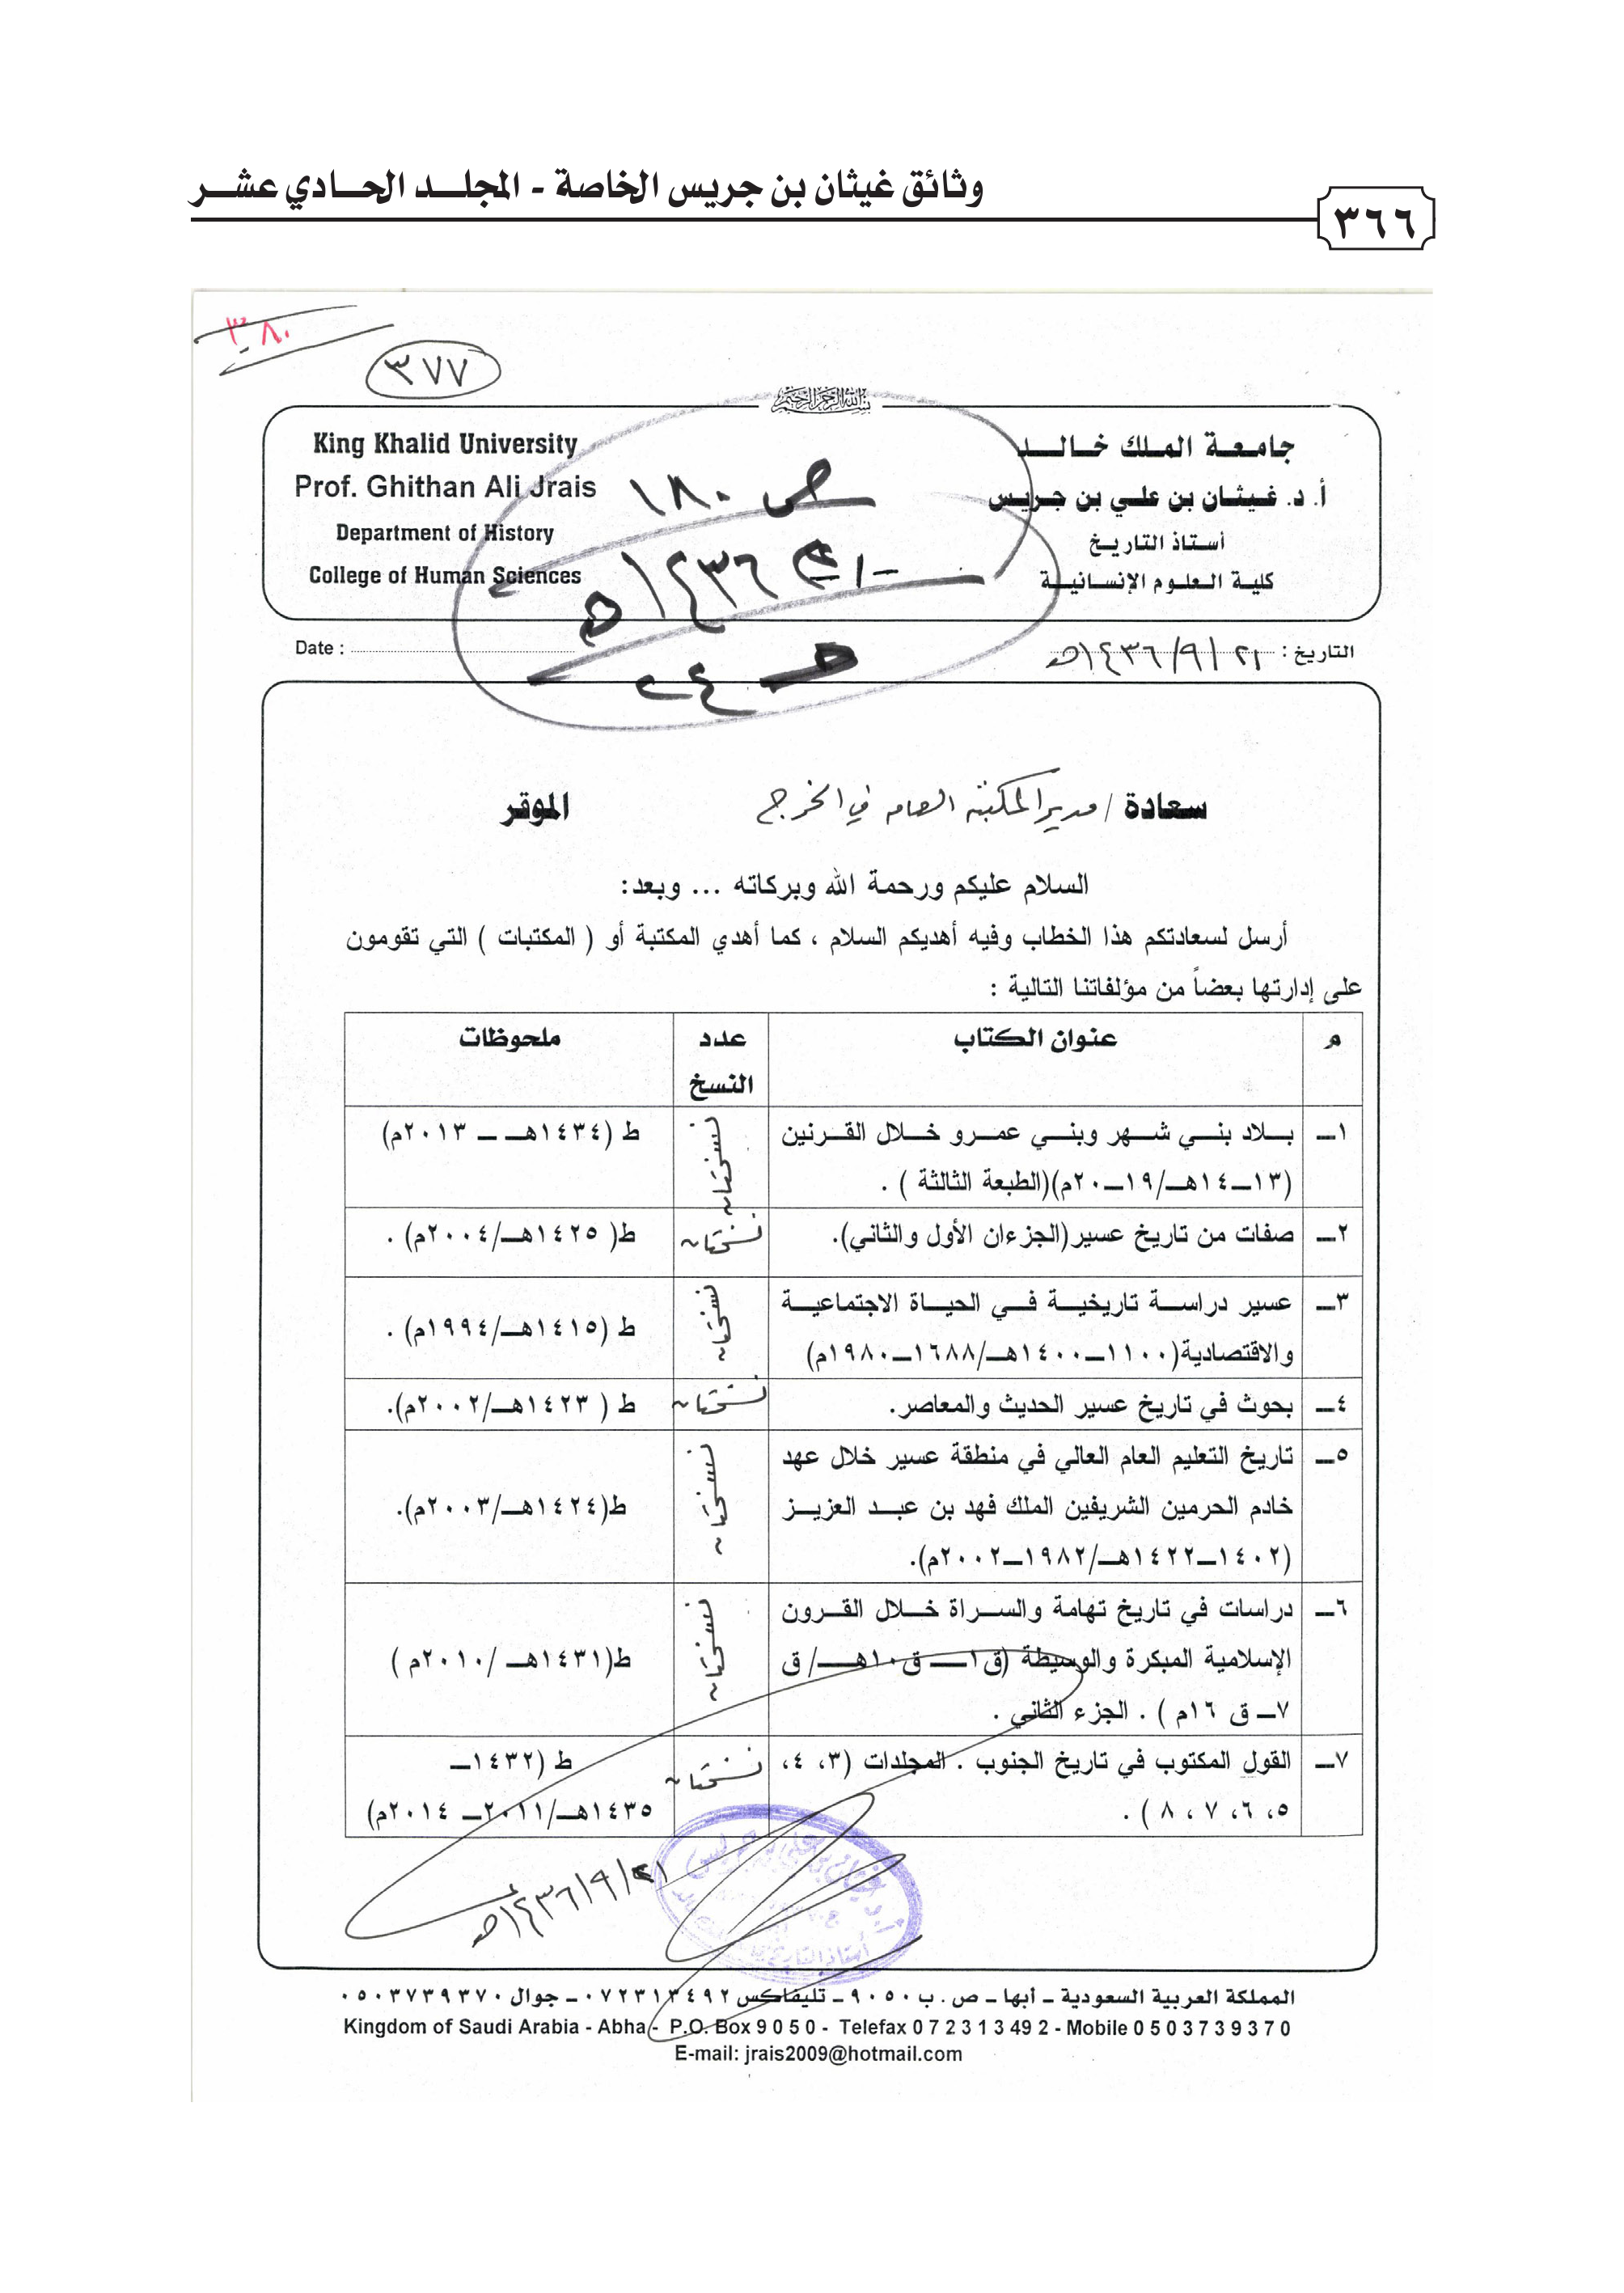 وثائق غيثان بن جريس الخاصة - المجلد الحادي عشر
٣٦٦
٣٨٠
٣٧٧
بسم الله الرحمن الرحيم
جامعة الملك خالد
أ. د. غيثان بن علي بن جريس
أستاذ التاريخ
كلية العلوم الإنسانية
King Khalid University
Prof. Ghithan Ali Jrais
Department of History
College of Human Sciences
ص ١٨٠
١٤٣٦هـ
حـ ٢٤
التاريخ : ٢١/٩/١٤٣٦هـ
Date :
سعادة / مدير المكتبة العامه في الخرج الموقر
السلام عليكم ورحمة الله وبركاته ... وبعد:
أرسل لسعادتكم هذا الخطاب وفيه أهديكم السلام ، كما أهدي المكتبة أو ( المكتبات ) التي تقومون
على إدارتها بعضاً من مؤلفاتنا التالية :
م عنوان الكتاب عدد النسخ ملحوظات
١ـ بلاد بني شهر وبني عمرو خلال القرنين
(١٣ـ١٤هـ/١٩ـ٢٠م)(الطبعة الثالثة ) . نسختان ط (١٤٣٤هـ ـ ٢٠١٣م)
٢ـ صفات من تاريخ عسير(الجزءان الأول والثاني). نسختان ط( ١٤٢٥هـ/٢٠٠٤م) .
٣ـ عسير دراسة تاريخية في الحياة الاجتماعية
والاقتصادية(١١٠٠ـ١٤٠٠هـ/١٦٨٨ـ١٩٨٠م) نسختان ط (١٤١٥هـ/١٩٩٤م) .
٤ـ بحوث في تاريخ عسير الحديث والمعاصر. نسختان ط ( ١٤٢٣هـ/٢٠٠٢م).
٥ـ تاريخ التعليم العام العالي في منطقة عسير خلال عهد
خادم الحرمين الشريفين الملك فهد بن عبد العزيز
(١٤٠٢ـ١٤٢٢هـ/١٩٨٢ـ٢٠٠٢م). نسختان ط(١٤٢٤هـ/٢٠٠٣م).
٦ـ دراسات في تاريخ تهامة والسراة خلال القرون
الإسلامية المبكرة والوسيطة (ق١ـ ق١٠هـ/ ق
٧ـ ق ١٦م ) . الجزء الثاني . نسختان ط(١٤٣١هـ /٢٠١٠م )
٧ـ القول المكتوب في تاريخ الجنوب . المجلدات (٣، ٤،
٥، ٦، ٧ ، ٨ ) . نسختان ط (١٤٣٢ـ
١٤٣٥هـ/٢٠١١ـ ٢٠١٤م)
٢١/٩/١٤٣٦هـ
أستاذ التاريخ
المملكة العربية السعودية ـ أبها ـ ص . ب ٩٠٥٠ ـ تليفاكس ٠٧٢٣١٣٤٩٢ ـ جوال ٠٥٠٣٧٣٩٣٧٠
Kingdom of Saudi Arabia - Abha - P.O. Box 9 0 5 0 - Telefax 0 7 2 3 1 3 49 2 - Mobile 0 5 0 3 7 3 9 3 7 0
E-mail: jrais2009@hotmail.com